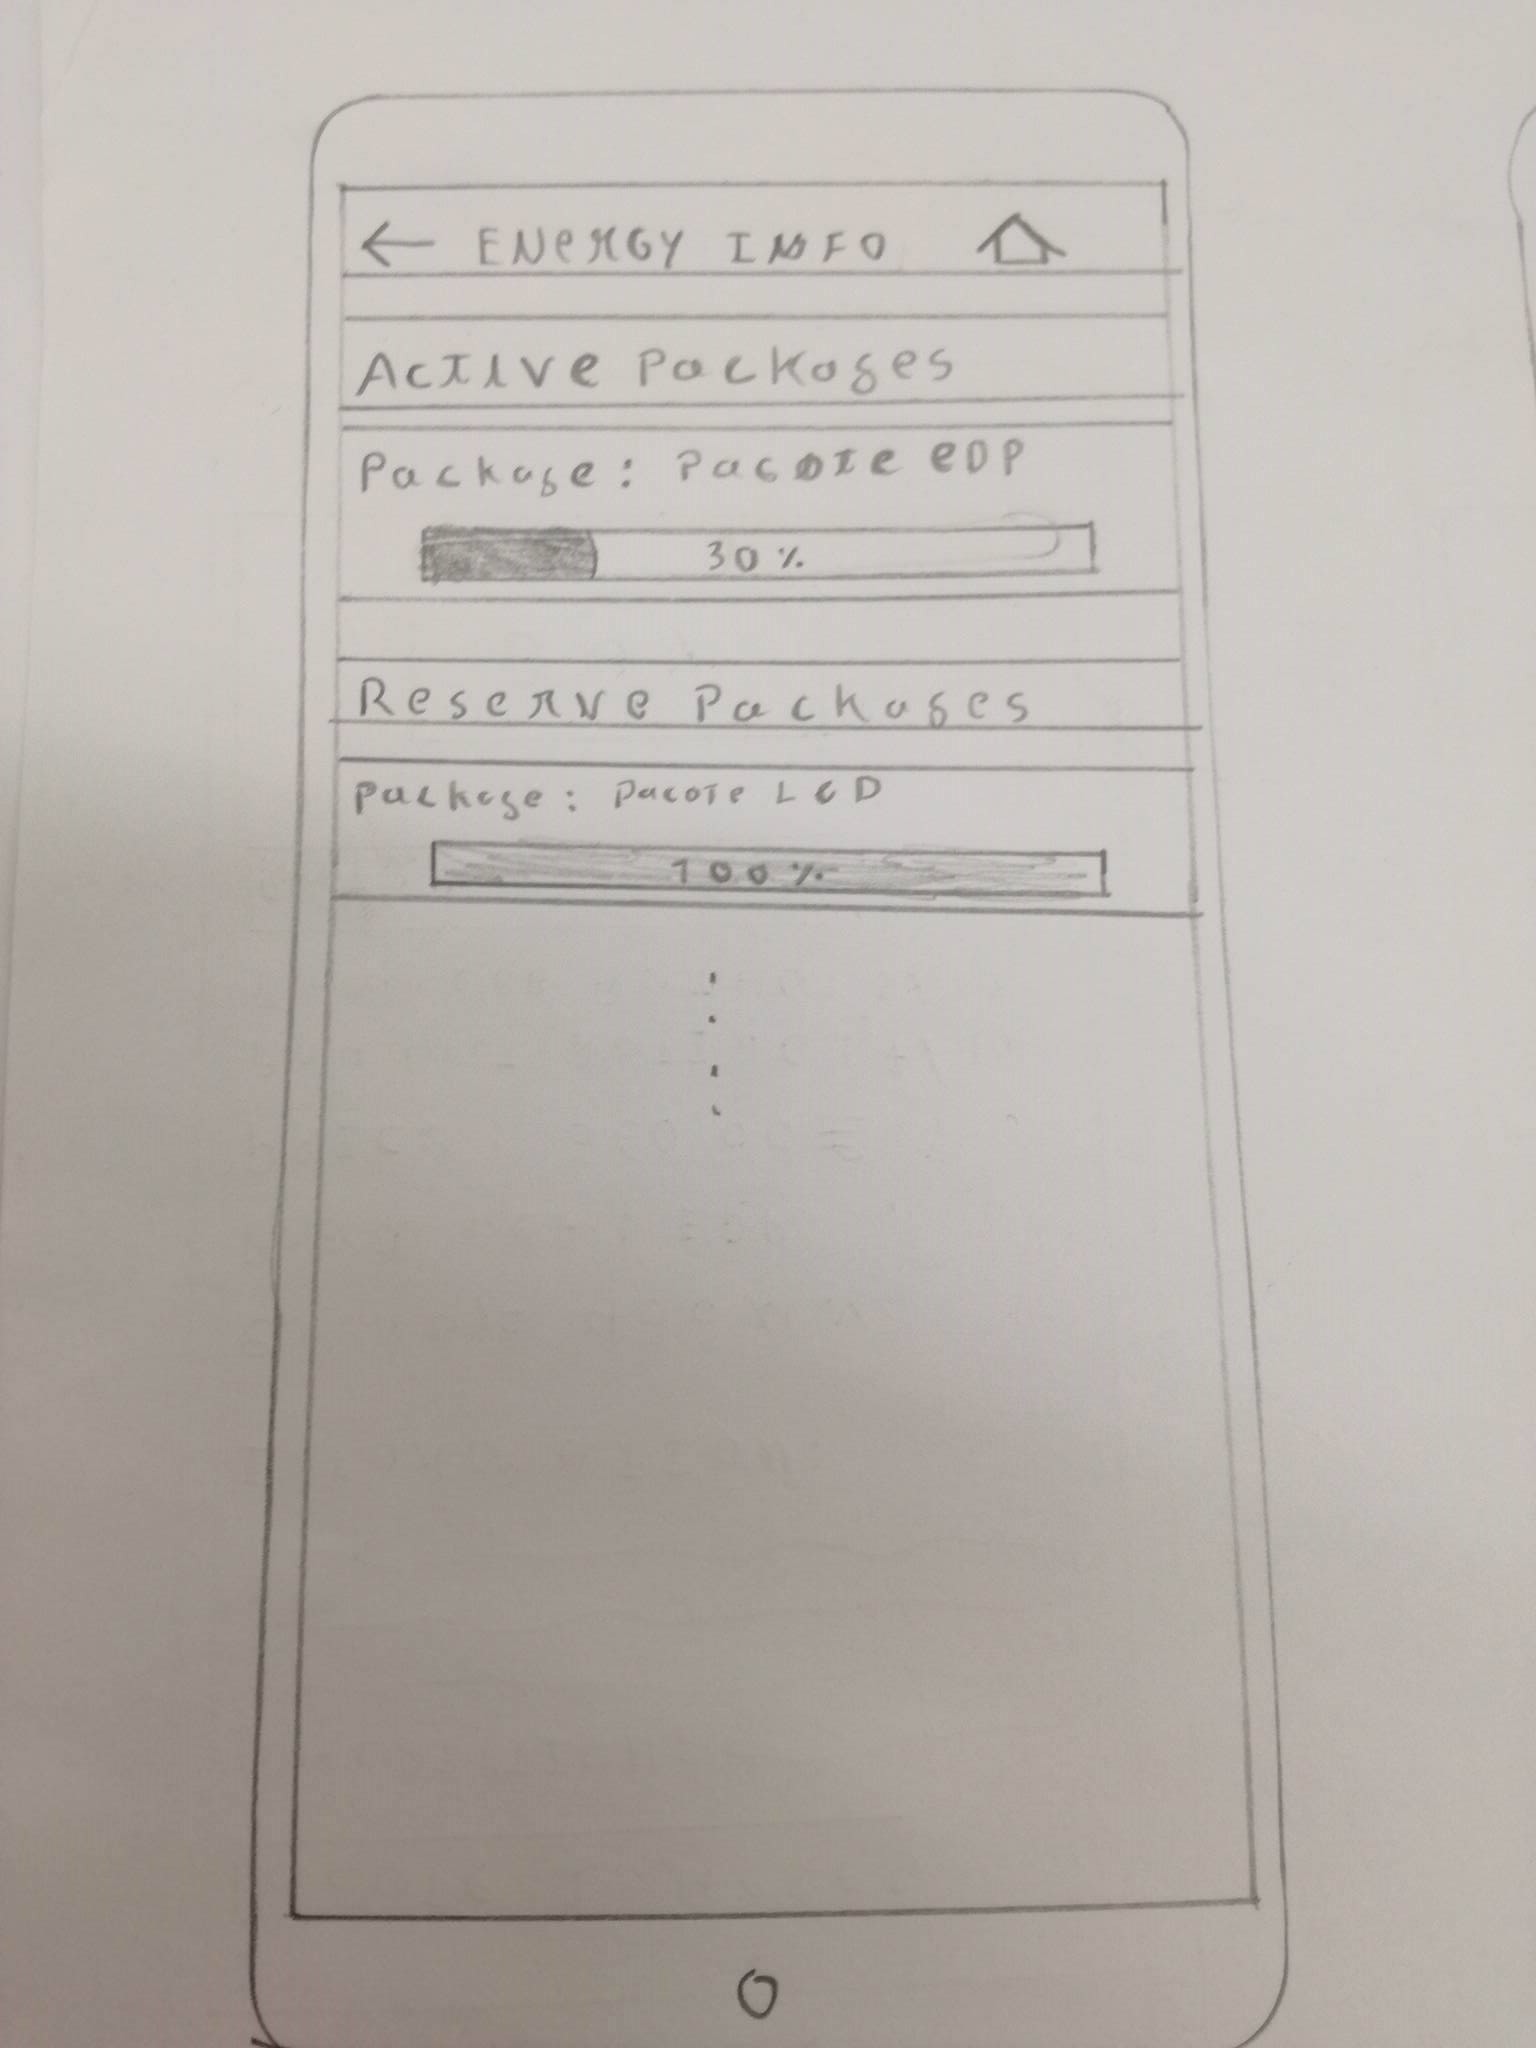 ENERGY INFO
Active Packages
Package: Pacote EDP
30%
Reserve Packages
package: pacote LCD
100%